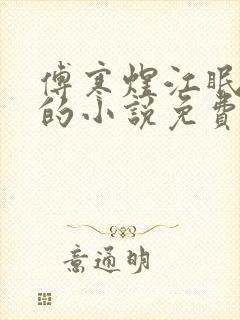 傅寒煋江眠
的小說免費
意通明